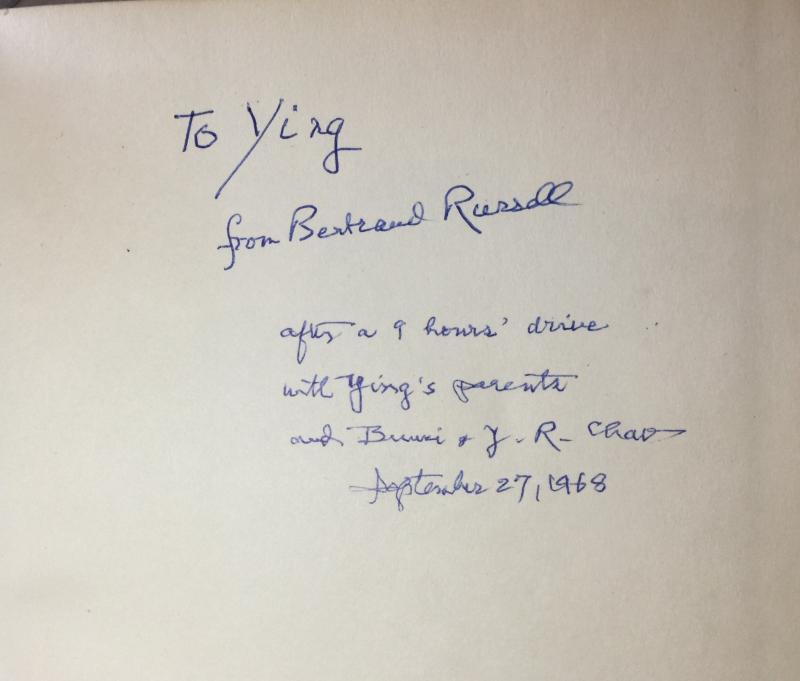 To Ying
from Bertrand Russell
after a 9 hours' drive
with Ying's parents
and Buwei & Y. R. Chao
September 27, 1968